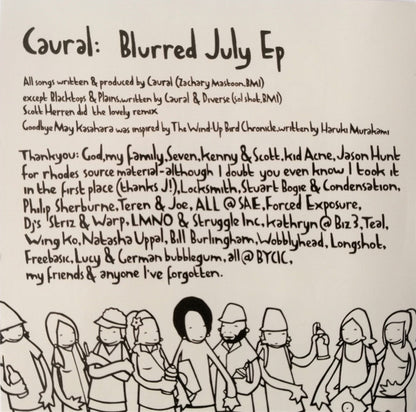 Caural: Blurred July Ep
All songs written & produced by Caural (Zachary Mastoon, BMI)
except Blacktops & Plains, written by Caural & Diverse (sol shot, BMI)
Scott Herren did the lovely remix
Goodbye May Kasahara was inspired by The Wind-Up Bird Chronicle, written by Haruki Murakami
Thankyou: God, my family, Seven, Kenny & Scott, Kid Acne, Jason Hunt
for rhodes source material-although I doubt you even know I took it
in the first place (thanks J!), Locksmith, Stuart Bogie & Condensation,
Philip Sherburne, Teren & Joe, ALL @ SAE, Forced Exposure,
Dj's 'Striz & Warp, LMNO & Struggle Inc, Kathryn @ Biz 3, Teal,
Wing Ko, Natasha Uppal, Bill Burlingham, Wobblyhead, Longshot,
Freebasic, Lucy & German bubblegum, all @ BYCIC,
my friends & anyone I've forgotten.